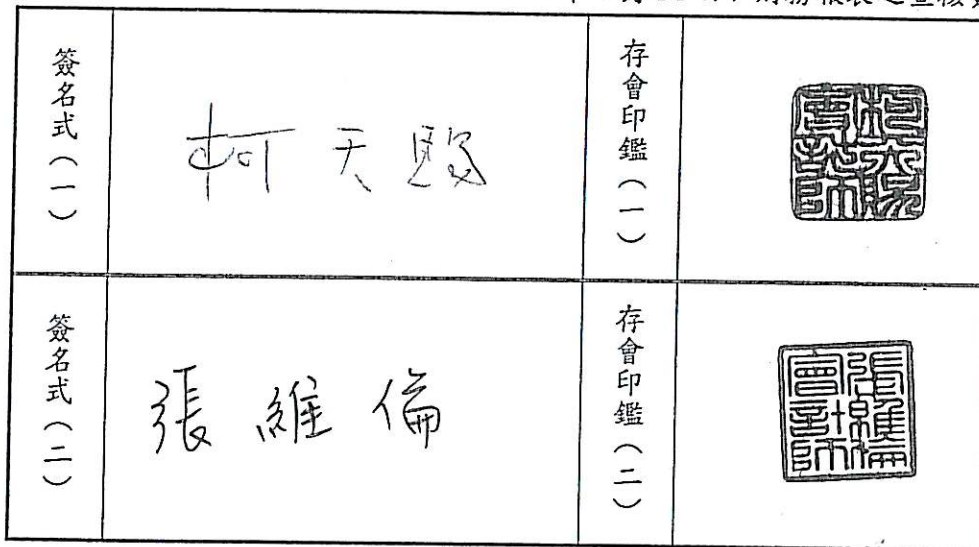 財務報表之查核
簽名式(一)
柯天賜
存會印鑑(一)
柯天賜會計師
簽名式(二)
張維倫
存會印鑑(二)
張維倫會計師